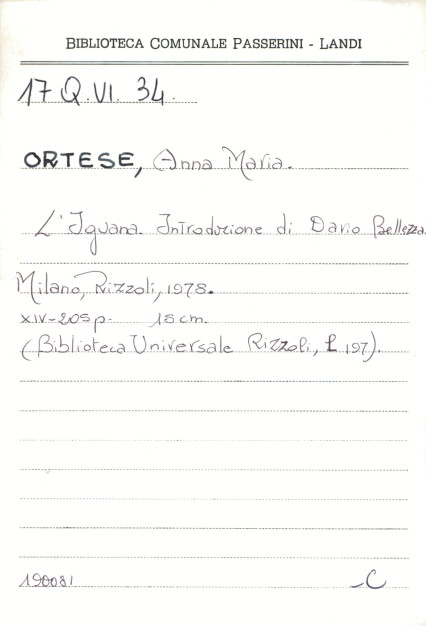 BIBLIOTECA COMUNALE PASSERINI - LANDI
17 Q. VI. 34.
ORTESE, Anna Maria.
L'Iguana. Introduzione di Dario Bellezza.
Milano, Rizzoli, 1978.
XIV-205 p. 18 cm.
(Biblioteca Universale Rizzoli, L 197).
190081 -C